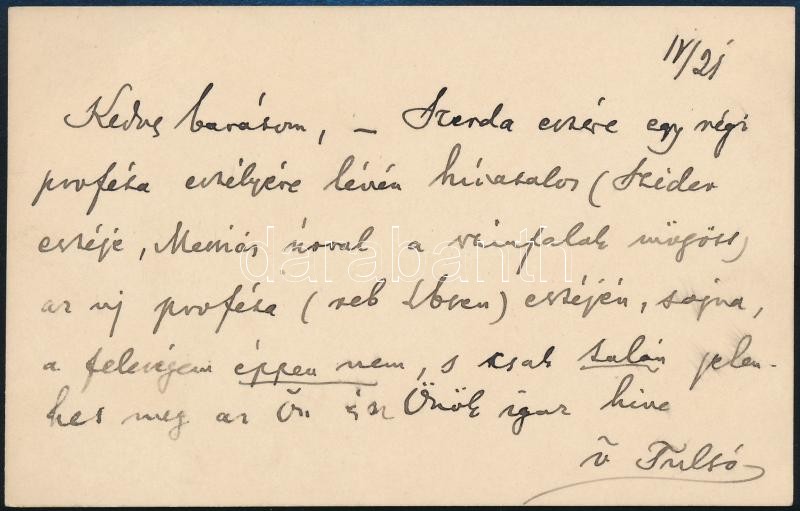 IV/21
Kedves barátom, – Szerda estére egy régi
proféta estélyére lévén hivatalos (Széder
estéje, Messiás úrral a szinfalak mögött)
az uj proféta (reb Ibsen) estéjén, sajna,
a feleségem éppen nem, s csak talán jelen-
het meg az Ön és Önök igaz hive
darabanth